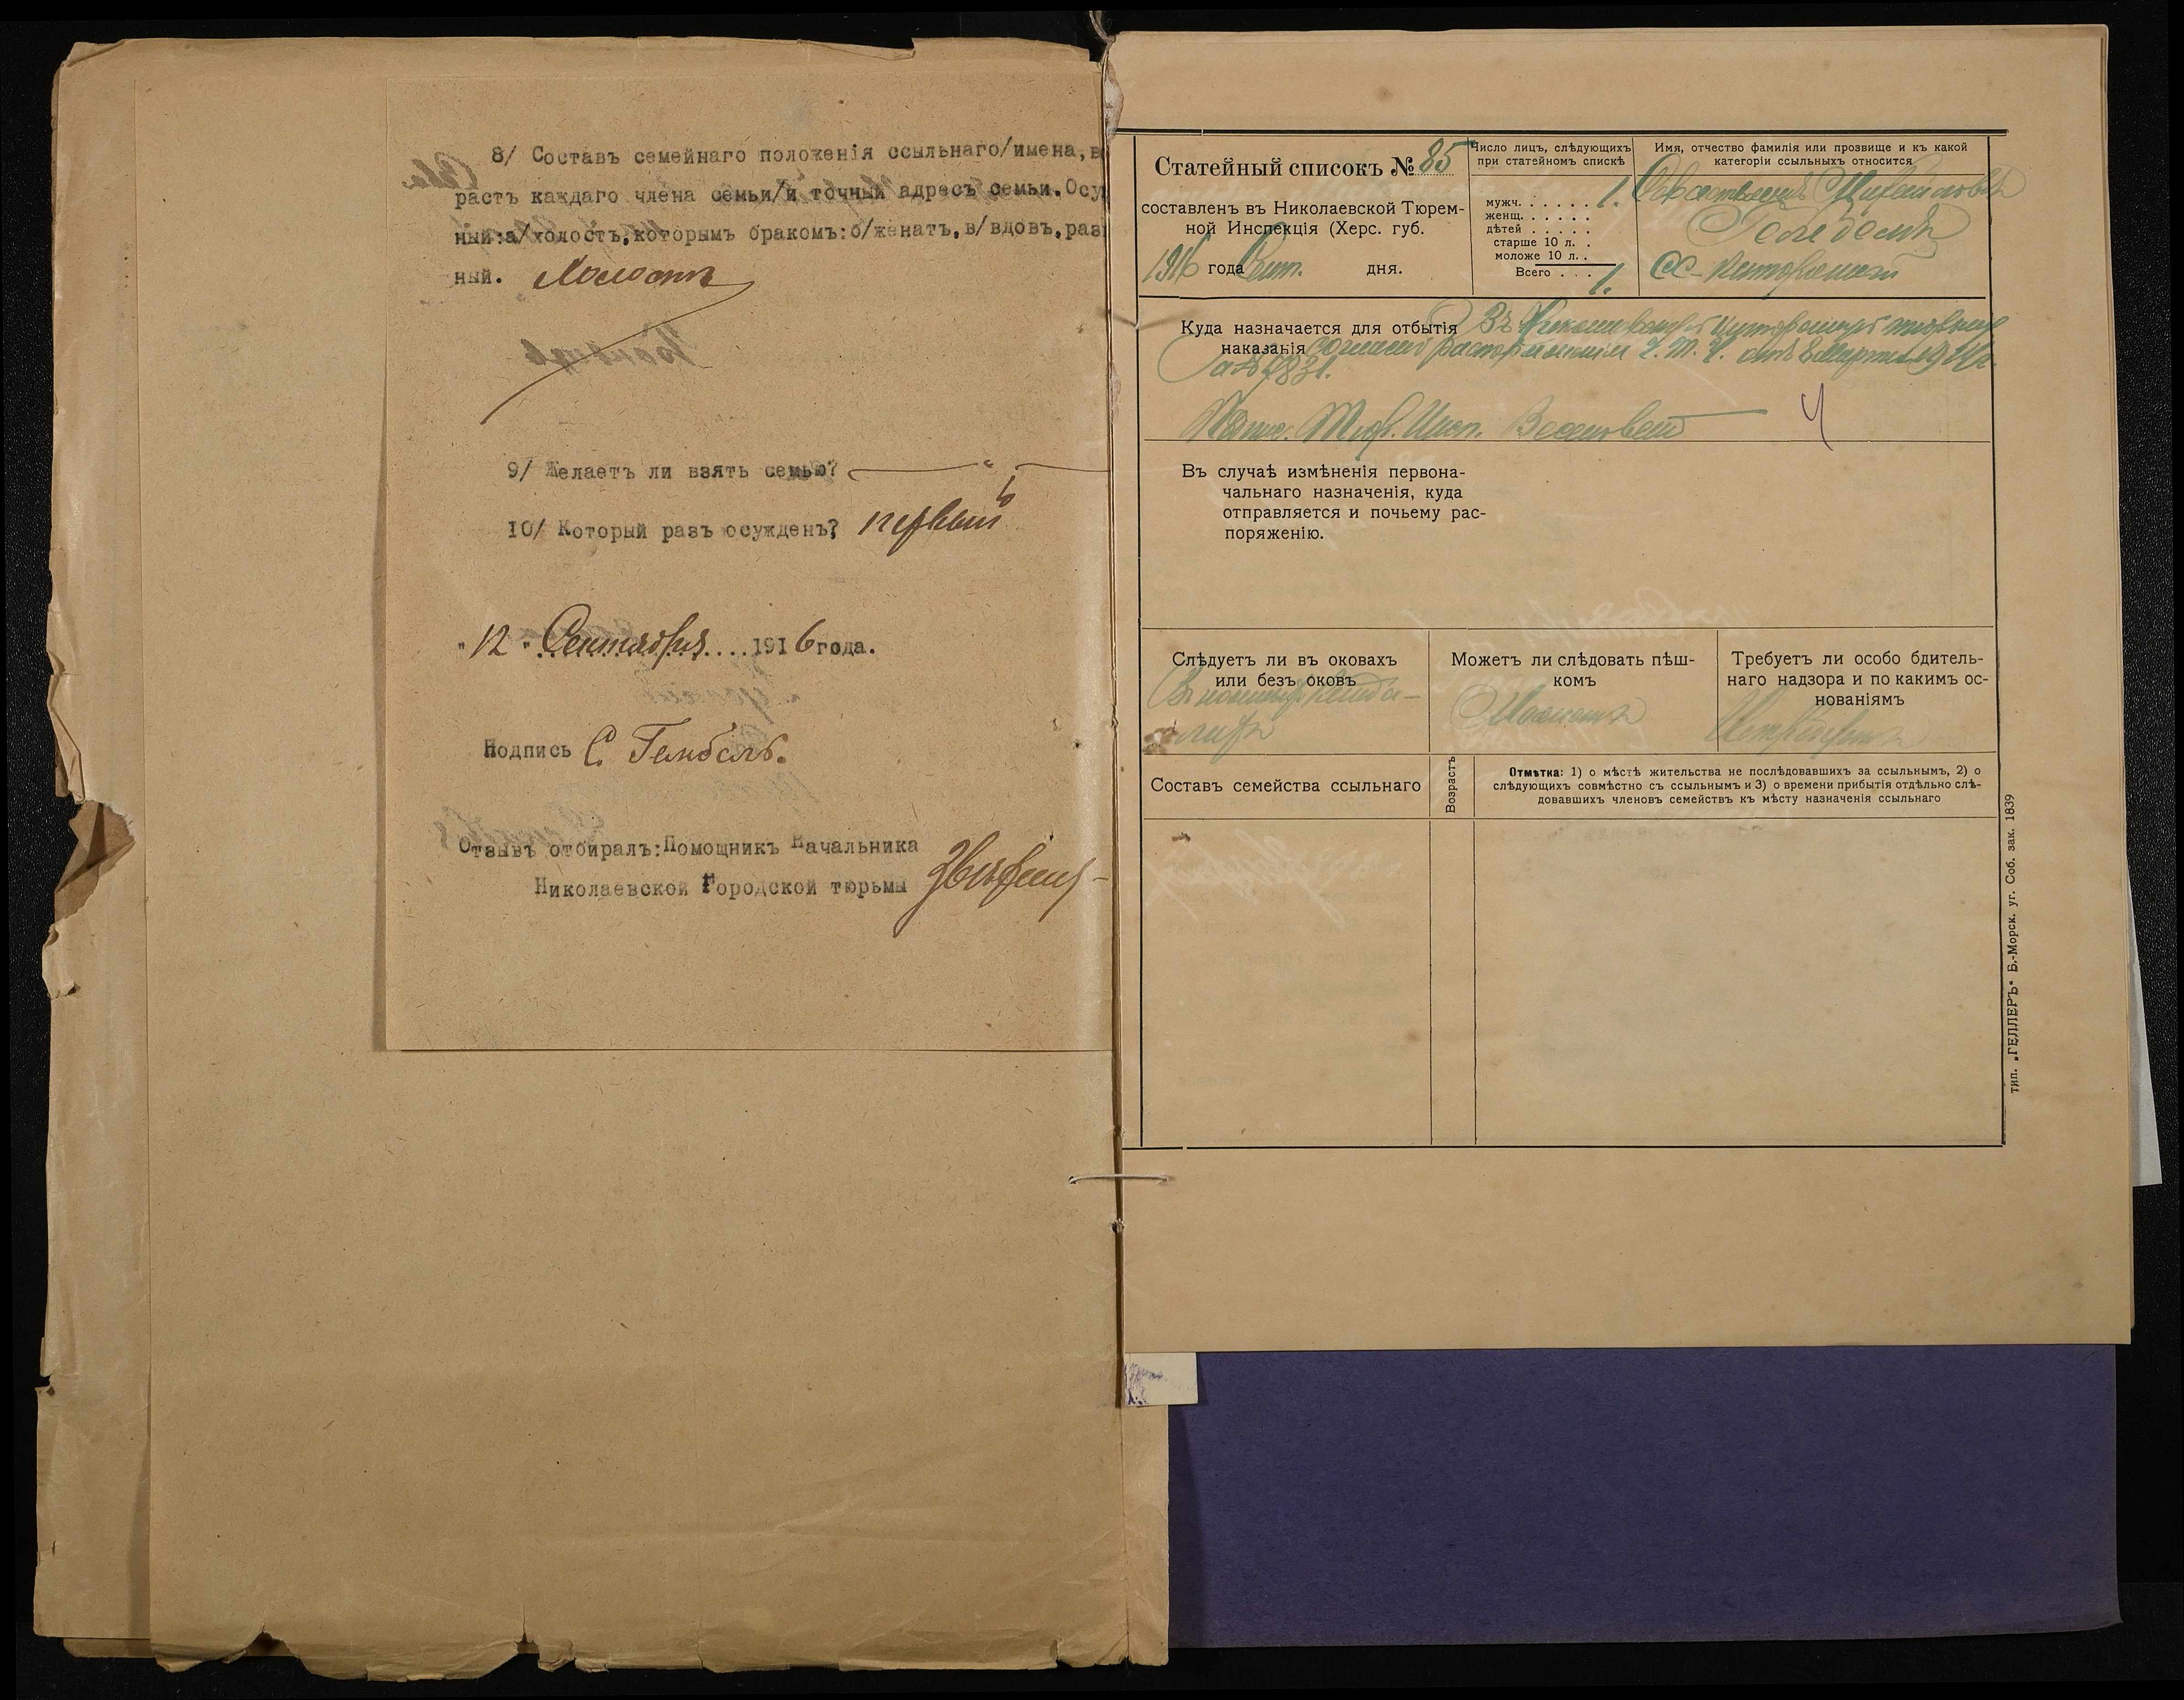 8/ Составъ семейнаго положенія ссыльнаго/имена,в
растъ каждаго члена семьи/и точный адресъ семьи.Осу
ный:а/холостъ,которымъ бракомъ:б/женатъ,в/вдовъ,раз
ный. Холостъ
9/ Желаетъ ли взять семью?
10/ Который разъ осужденъ? первый
"12" Сентября....1916 года.
Подпись С. Гембель.
Отзывъ отбиралъ:Помощникъ Начальника
Николаевской Городской тюрьмы
Статейный списокъ № 85
составленъ въ Николаевской Тюрем-
ной Инспекція (Херс. губ.
1916 года Сент. дня.
Число лицъ, слѣдующихъ
при статейномъ спискѣ
мужч. . . . . . . 1.
женщ. . . . . . .
дѣтей . . . . .
старше 10 л. . .
моложе 10 л. . .
Всего . . . 1.
Имя, отчество фамилія или прозвище и къ какой
категоріи ссыльныхъ относится
Куда назначается для отбытія
наказанія
Въ случаѣ измѣненія первона-
чальнаго назначенія, куда
отправляется и почьему рас-
поряженію.
Слѣдуетъ ли въ оковахъ
или безъ оковъ
Въ ножныхъ канда-
лахъ
Можетъ ли слѣдовать пѣш-
комъ
Можетъ
Требуетъ ли особо бдитель-
наго надзора и по какимъ ос-
нованіямъ
Составъ семейства ссыльнаго
Возрастъ
Отмѣтка: 1) о мѣстѣ жительства не послѣдовавшихъ за ссыльнымъ, 2) о
слѣдующихъ совмѣстно съ ссыльнымъ и 3) о времени прибытія отдѣльно слѣ-
довавшихъ членовъ семействъ къ мѣсту назначенія ссыльнаго
тип. „ГЕЛЛЕРЪ" Б.-Морск. уг. Соб. зак. 1839